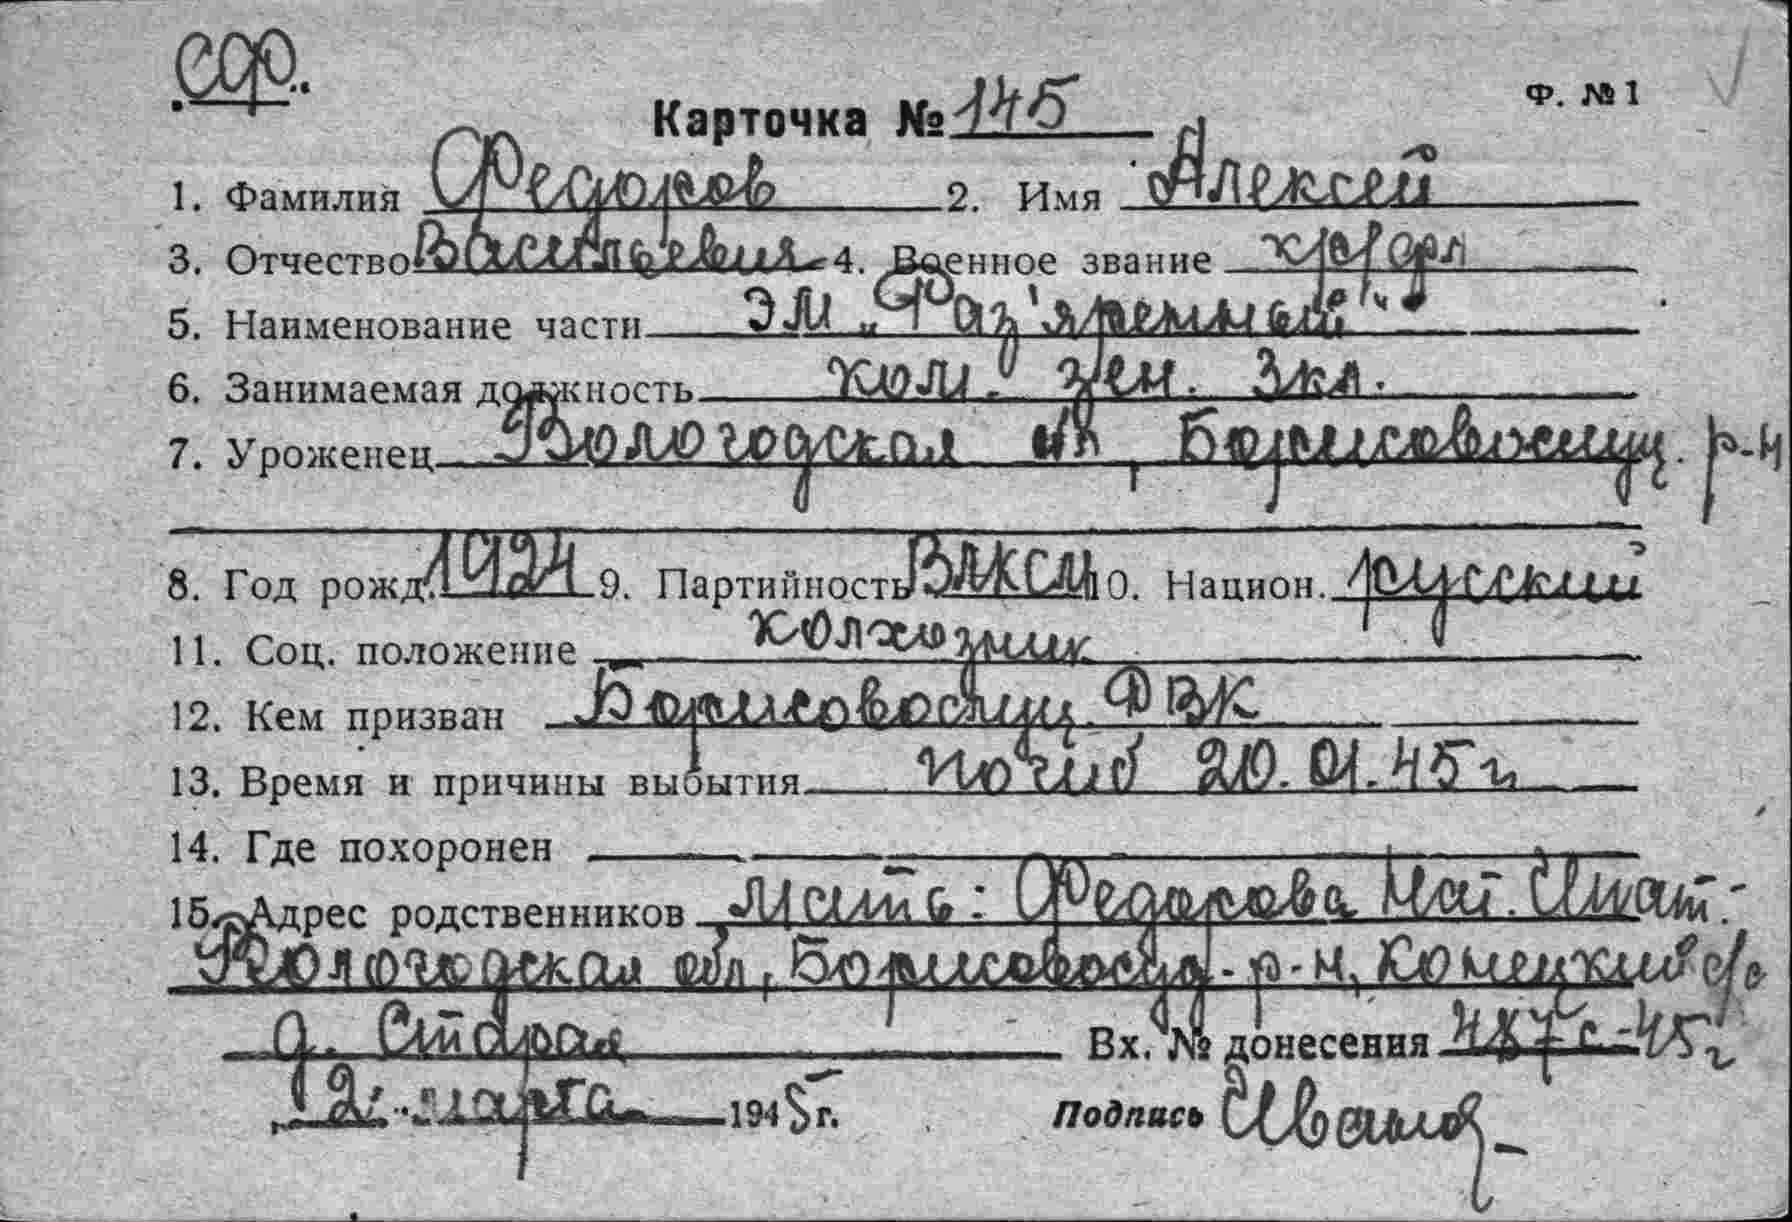 СФ.
Карточка № 145
Ф. № 1
1. Фамилия Федоров 2. Имя Алексей
3. Отчество Васильевич 4. Военное звание кр/фл
5. Наименование части ЭМ „Раз'яренный"
6. Занимаемая должность ком. зен.
7. Уроженец Вологодская обл, Борисовосудц. р-н
8. Год рожд. 1924 9. Партийность ВЛКСМ 10. Национ. русский
11. Соц. положение колхозник
12. Кем призван Борисовосудц. РВК
13. Время и причины выбытия погиб 20.01.45 г
14. Где похоронен
15. Адрес родственников мать: Федорова Мат. Игнат.
Вологодская обл, Борисовосуд. р-н, Конецкий с/с
д. Старая Вх. № донесения 487с-45г
„2" марта 1945 г. Подпись